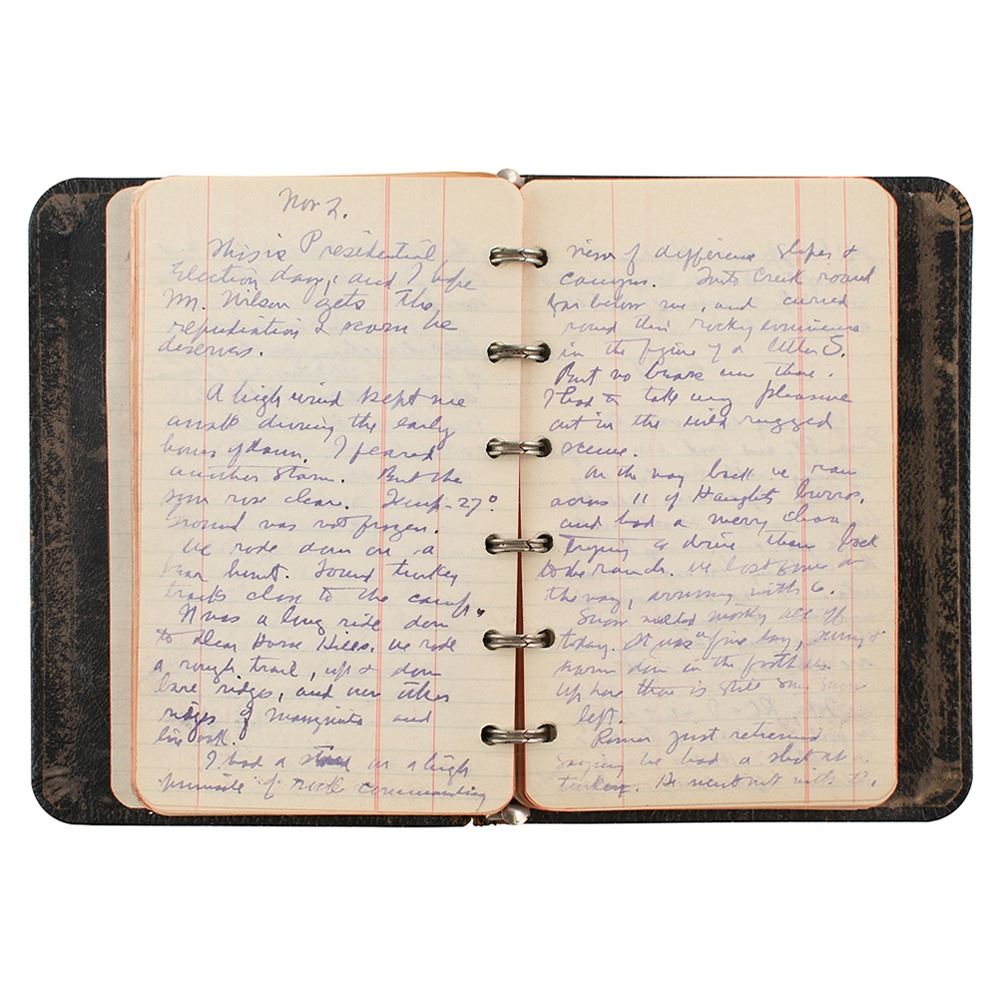 Nov 2.
This is Presidential
Election day, and I hope
Mr. Wilson gets the
repudiation & scorn he
deserves.
A high wind kept me
awake during the early
hours of dawn. I feared
another storm. But the
sun rose clear. Temp - 27°
Ground was not frozen.
We rode down on a
bear hunt. Found turkey
tracks close to the camp.
It was a long ride down
to Dear Horse Hills. We rode
a rough trail, up & down
bare ridges, and over other
ridges of manzanita and
live oak.
I had a stand on a high
pinnacle of rock commanding
view of difference slopes &
canyons. Tonto Creek roared
far below me, and curved
round this rocky eminence
in the figure of a letter S.
But no bears over there.
I had to take my pleasure
out in the wild rugged
scene.
On the way back we ran
across 11 of Haught's burros,
and had a merry chase
trying to drive them back
to the ranch. We lost some on
the way, arriving with 6.
Snow melted mostly all off
today. It was a fine day, sunny &
warm down in the foothills.
Up here there is still some snow
left.
Romer just returned
saying he had a shot at a
turkey. He went out with